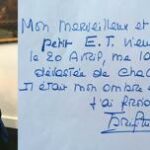 Mon merveilleux et
petit E.T. vien
le 20 Avril, me
dévastée de cha
Il était mon ombre
j'ai